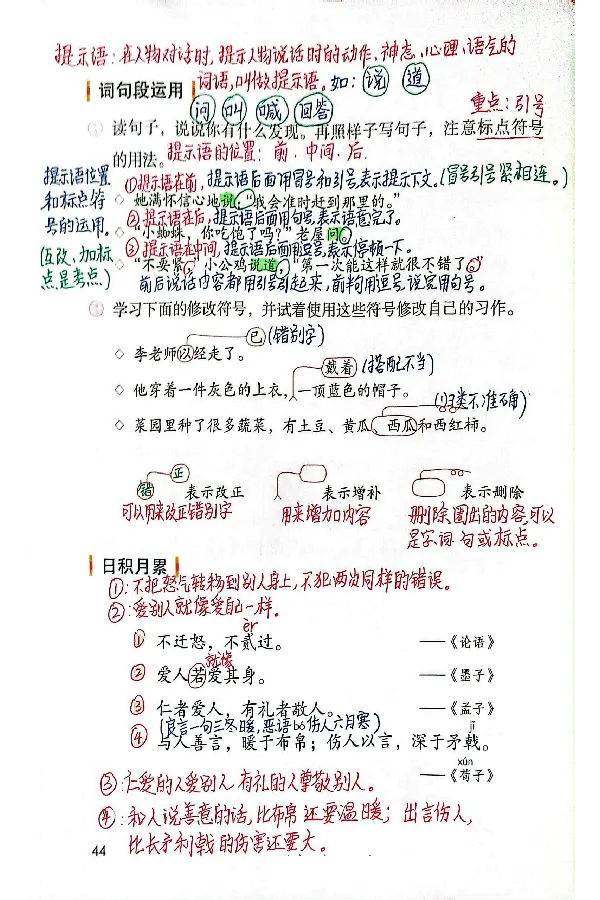 提示语:在人物对话时,提示人物说话时的动作、神态、心理、语气的
词语,叫做提示语。如:说 道
词句段运用
问 叫 喊 回答
重点:引号
读句子,说说你有什么发现。再照样子写句子,注意标点符号
的用法。提示语的位置:前.中间.后.
提示语位置
和标点符
号的运用。
(互改、加标
点是考点)
①提示语在前,提示语后面用冒号和引号,表示提示下文。(冒号引号紧相连。)
◇ 她满怀信心地说:“我会准时赶到那里的。”
②提示语在后,提示语后面用句号,表示话说完了。
◇ “小蜘蛛,你吃饱了吗?”老屋问。
③提示语在中间,提示语后面用逗号,表示停顿一下。
◇ “不要紧,”小公鸡说道,“第一次能这样就很不错了。”
前后说话内容都用引号引起来,前半句用逗号,说完用句号。
学习下面的修改符号,并试着使用这些符号修改自己的习作。
已(错别字)
◇ 李老师以经走了。
戴着(搭配不当)
◇ 他穿着一件灰色的上衣,一顶蓝色的帽子。
(归类不准确)
◇ 菜园里种了很多蔬菜,有土豆、黄瓜、西瓜和西红柿。
正
错 表示改正
表示增补
表示删除
可以用来改正错别字
用来增加内容
删除圈出的内容,可以
是字.词.句或标点。
日积月累
①:不把怒气转移到别人身上,不犯两次同样的错误。
②:爱别人就像爱自己一样。
èr
① 不迁怒,不贰过。 ——《论语》
就像
② 爱人若爱其身。 ——《墨子》
③ 仁者爱人,有礼者敬人。 ——《孟子》
(良言一句三冬暖,恶语伤人六月寒)
bó
jǐ
④ 与人善言,暖于布帛;伤人以言,深于矛戟。
xún
——《荀子》
③:仁爱的人爱别人,有礼的人尊敬别人。
④:和人说善意的话,比布帛还要温暖;出言伤人,
比长矛利戟的伤害还要大。
44